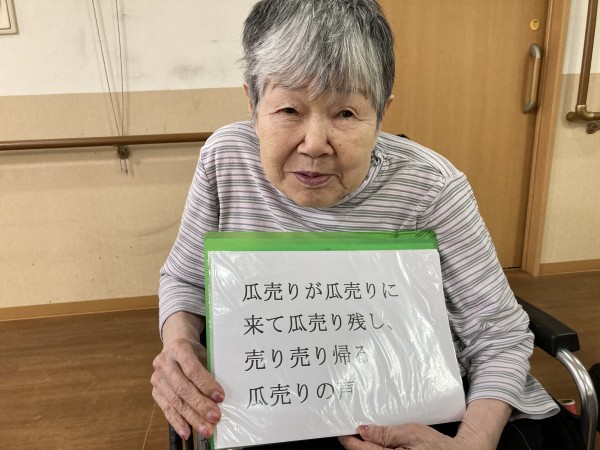 瓜売りが瓜売りに
来て瓜売り残し、
売り売り帰る
瓜売りの声